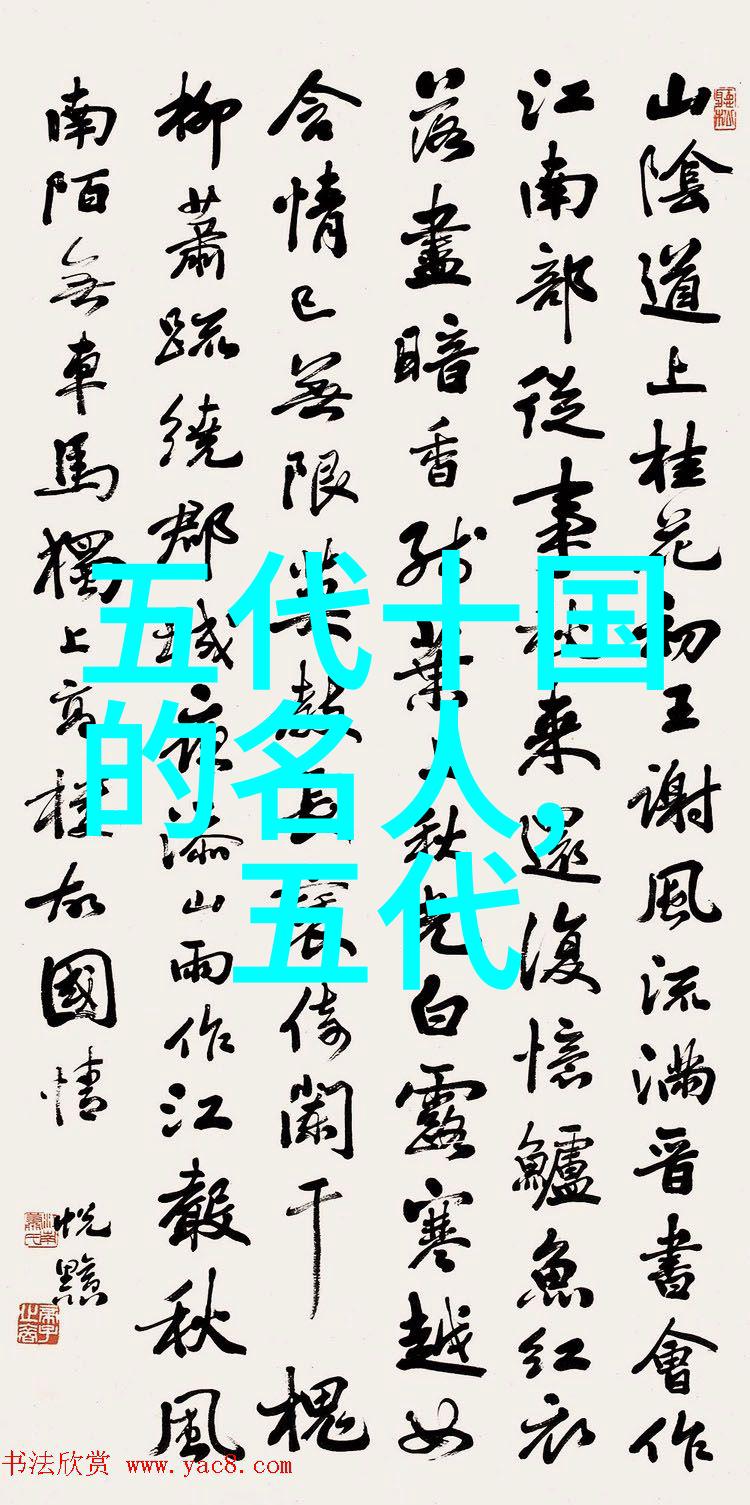 山陰道上桂花初王謝風流滿晉書會作
江南部從事秋來還復憶鱸魚紅衣
落盡暗香殘葉上秋光白露寒越女
含情已無限莫教長袖倚闌干 槐
柳蕭疏繞郡城夜添山雨作江聲秋風
南陌無車馬獨上高樓故國情
五代十国
的名人,
五代
书法欣赏 www.yac8.com